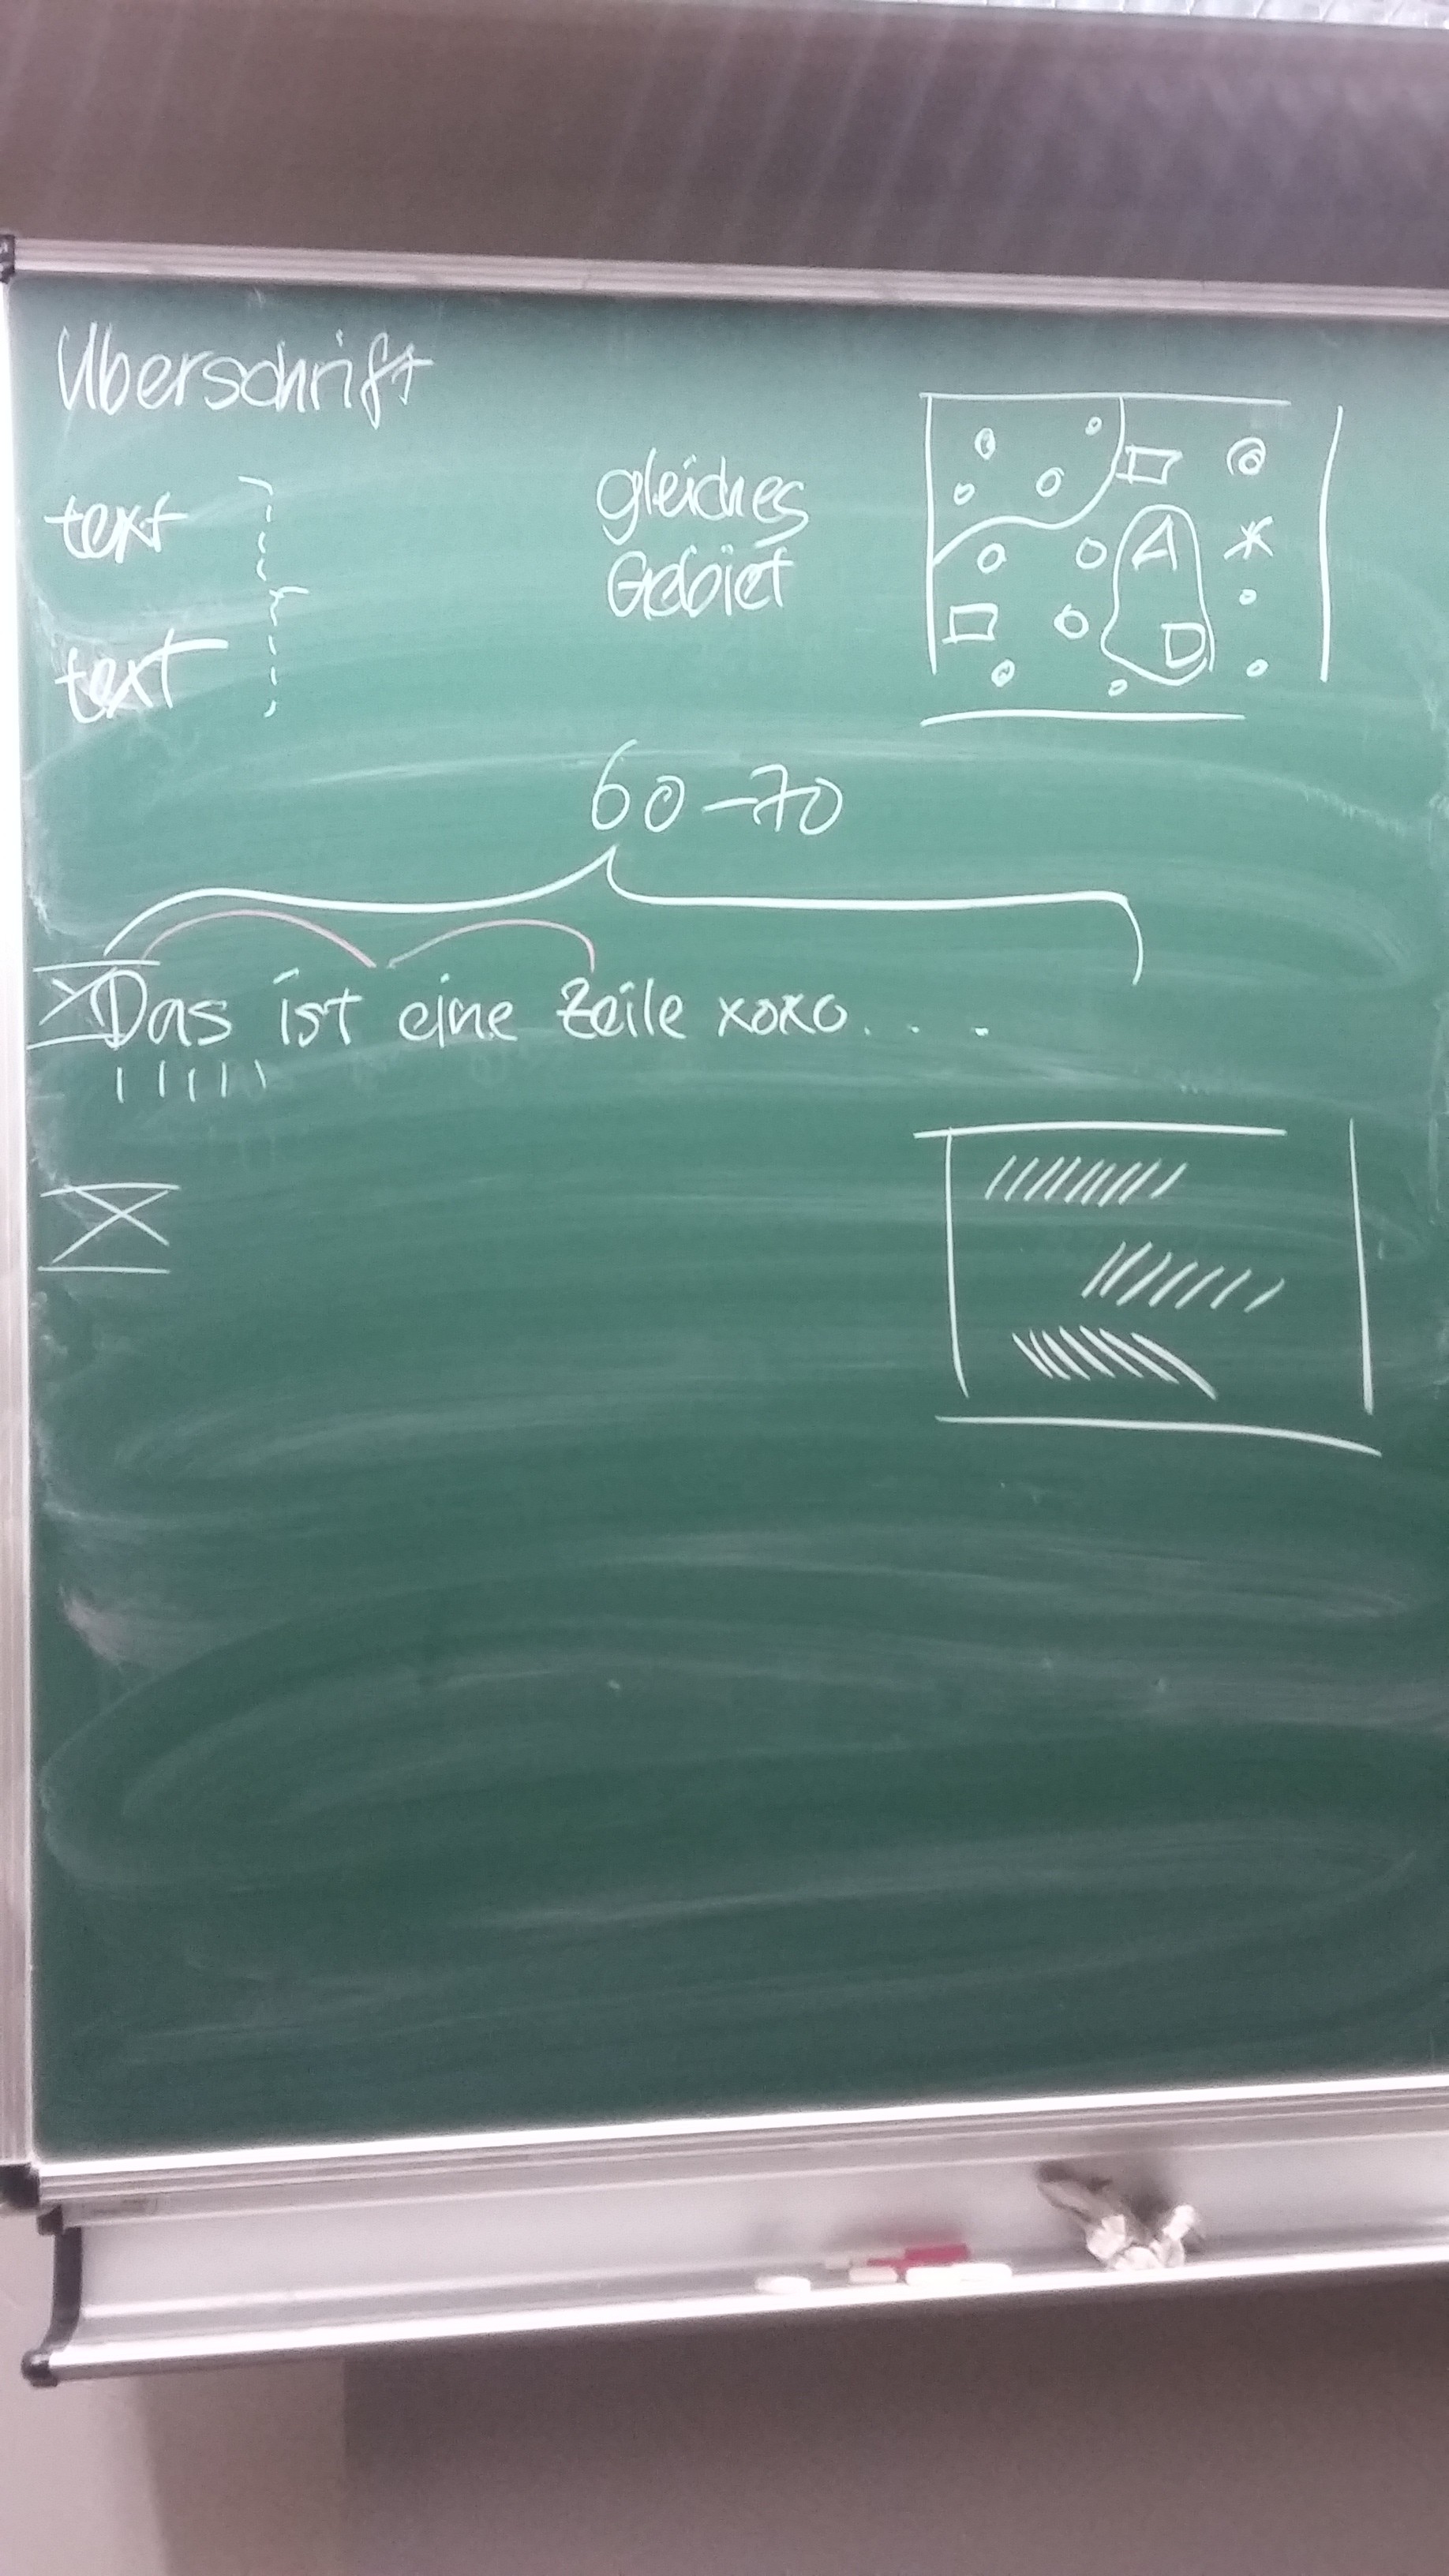 Überschrift
text
text
gleiches
Gebiet
A
60-70
Das ist eine Zeile xoxo....